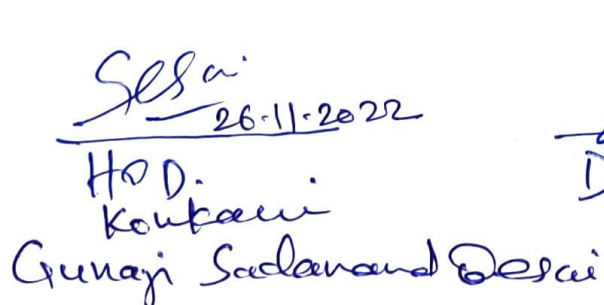 Desai
26-11-2022
HOD.
Konkani
Gunaji Sadanand Desai